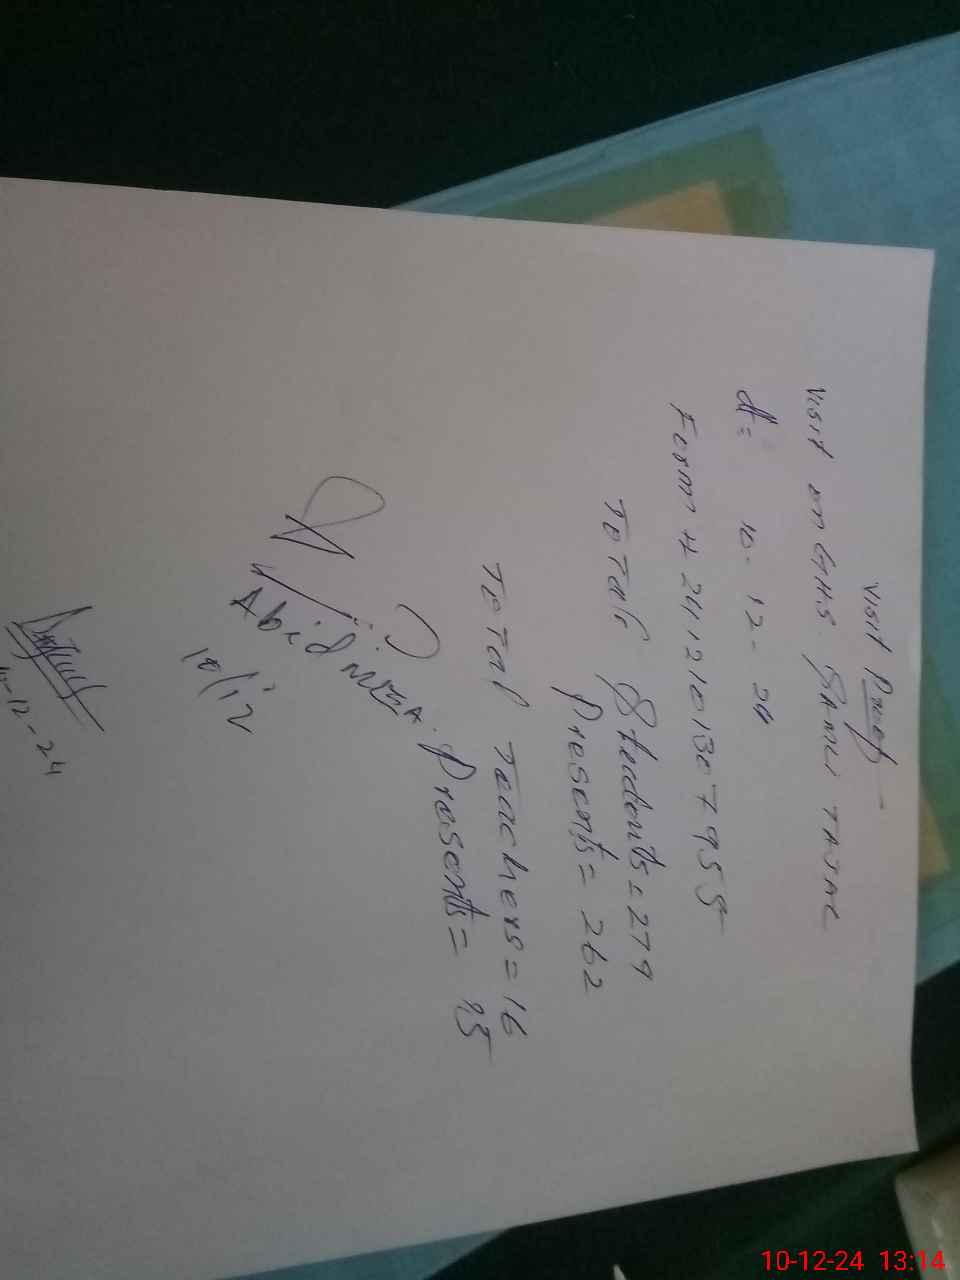 Visit Proof
Visit on GHS. SAMLI TAJAL
dt= 10-12-24
Form # 2412101307955
Total Students=279
Presents= 262
Total Teachers=16
Presents= 15
Abid
10/12
10-12-24
10-12-24 13:14